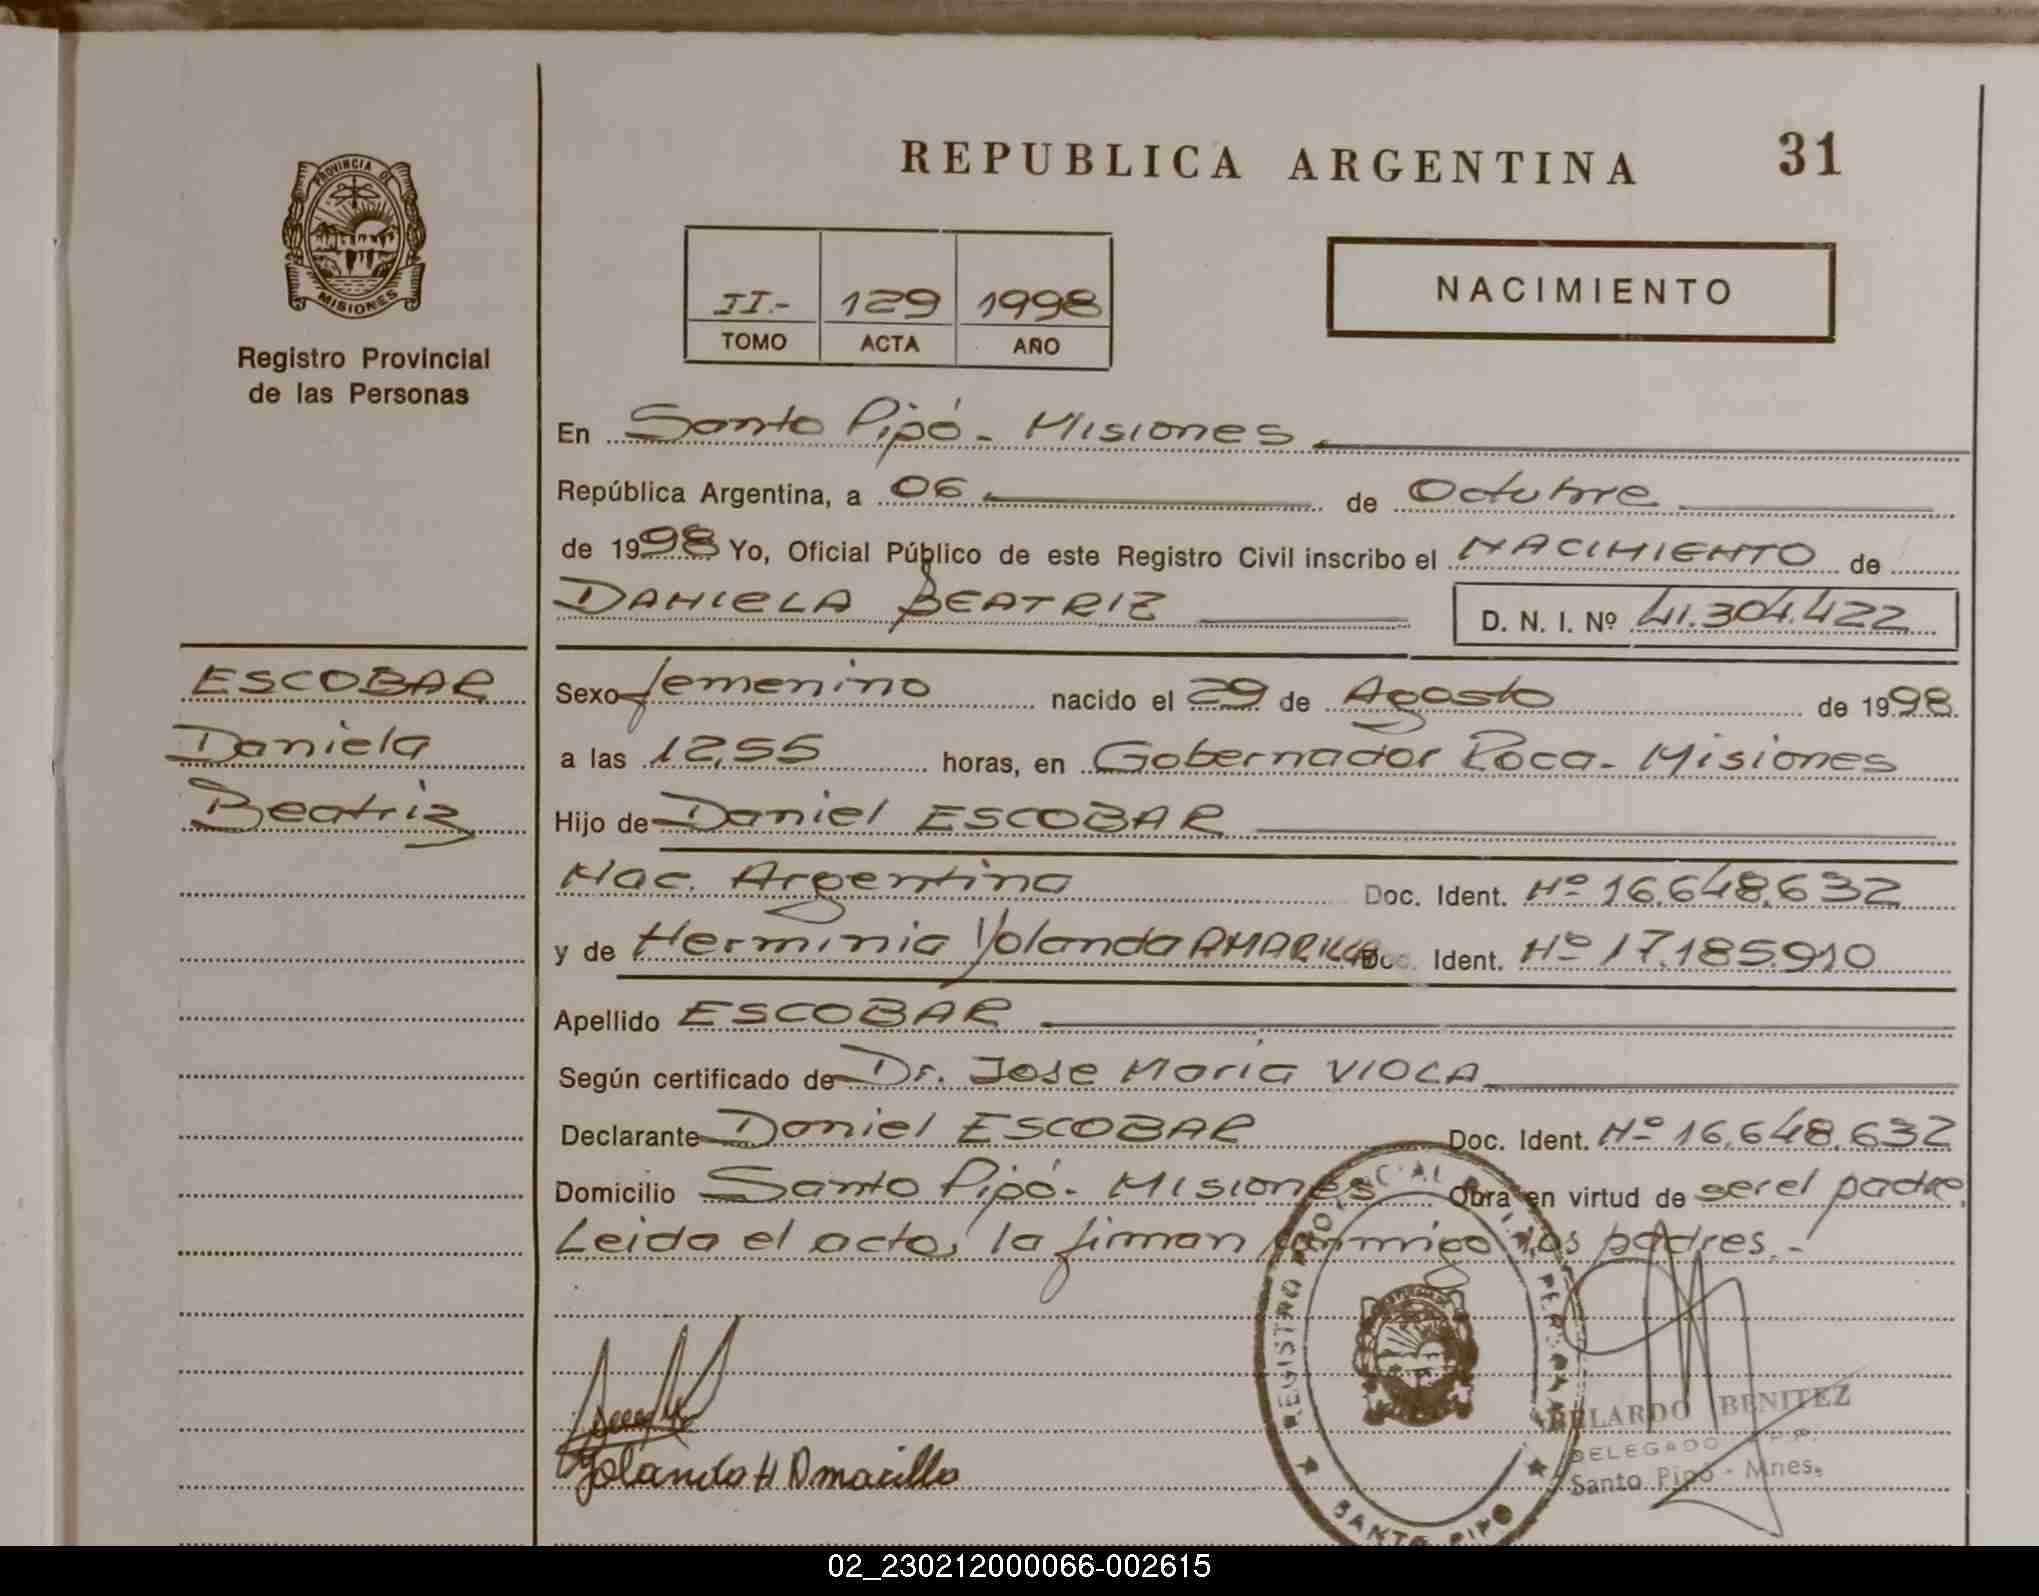 PROVINCIA DE
MISIONES
Registro Provincial
de las Personas
ESCOBAR
Daniela
Beatriz
REPUBLICA ARGENTINA 31
II.- 129 1998
TOMO ACTA AÑO
NACIMIENTO
En Santo Pipó - Misiones
República Argentina, a 06 de Octubre
de 1998 Yo, Oficial Público de este Registro Civil inscribo el NACIMIENTO de
DANIELA BEATRIZ D. N. I. Nº 41.304.422
Sexo femenino nacido el 29 de Agosto de 1998
a las 12,55 horas, en Gobernador Roca - Misiones
Hijo de Daniel ESCOBAR
Nac. Argentina Doc. Ident. Nº 16.648.632
y de Herminia Yolanda AMARILLO Doc. Ident. Nº 17.185.910
Apellido ESCOBAR
Según certificado de Dr. Jose Maria VIOLA
Declarante Daniel ESCOBAR Doc. Ident. Nº 16.648.632
Domicilio Santo Pipó - Misiones Obra en virtud de ser el padre.
Leida el acta, la firman conmigo los padres.-
Yolanda H Amarillo
REGISTRO PROVINCIAL DE LAS PERSONAS
SANTO PIPO
ABELARDO BENITEZ
DELEGADO R.P.P.
Santo Pipó - Mnes.
02_230212000066-002615